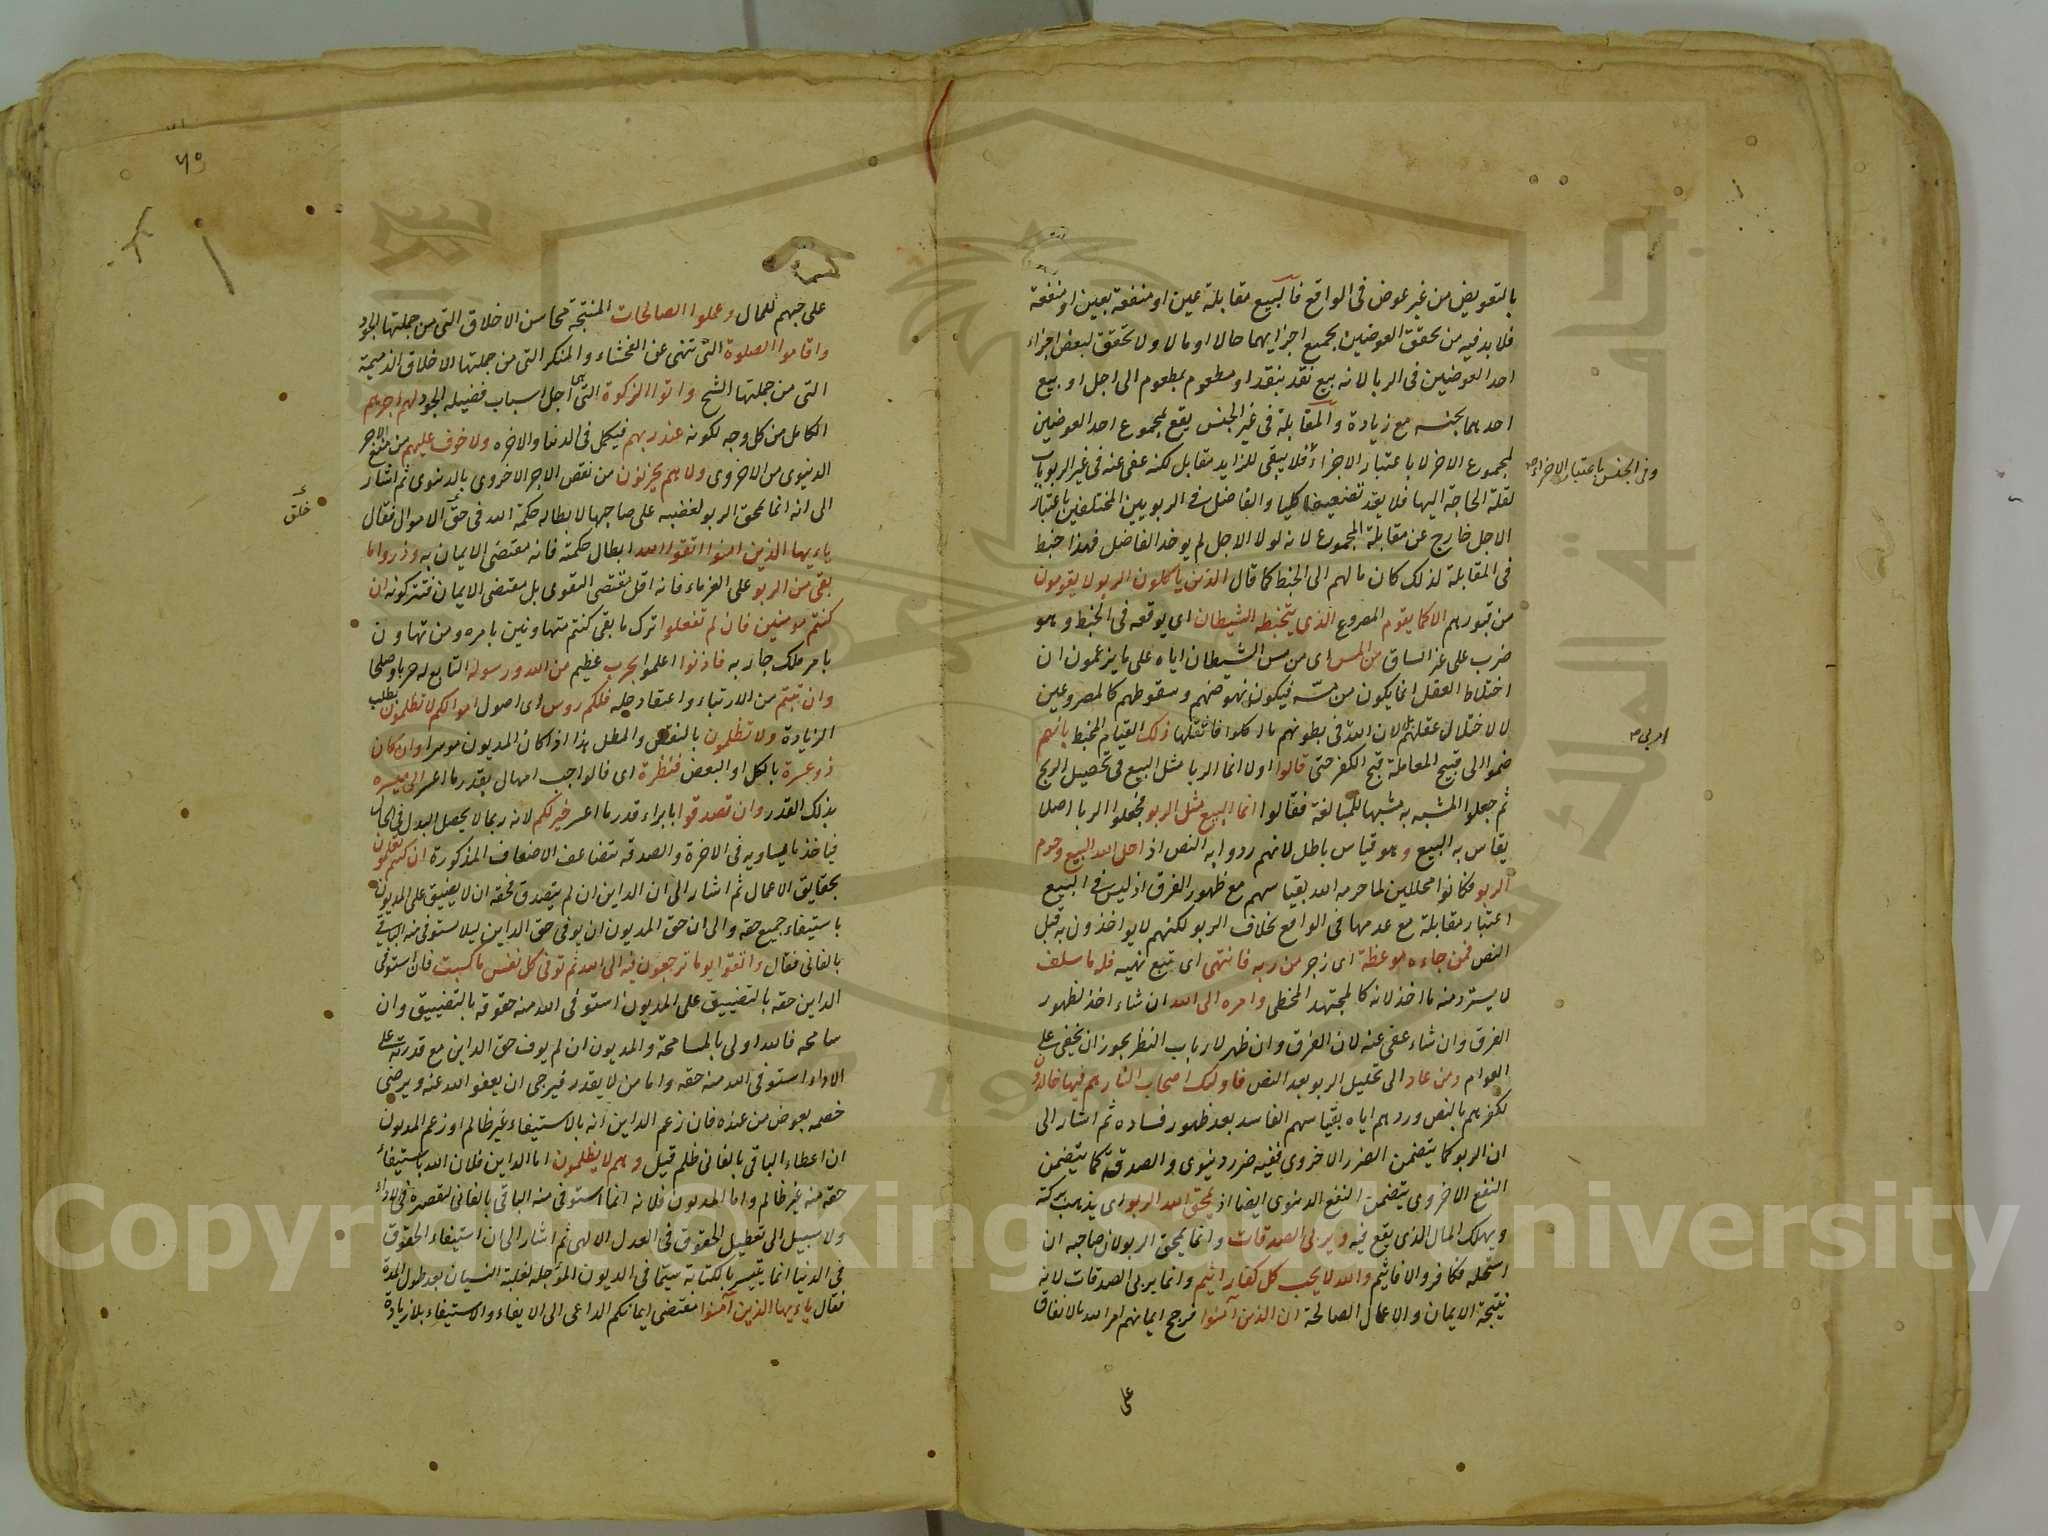 بالتعويض من غير عوض فى الواقع فالبيع مقابلة عين او منفعة بعين او منفعة
فلا بد فيه من تحقق العوضين بجميع اجزايهما حالا او مالا ولا تحقق لبعض اجزاء
احد العوضين فى الربا لانه بيع نقد بنقد او مطعوم بمطعوم الى اجل او بيع
احدهما بجنسه مع زيادة والمقابلة فى غير الجنس يقع لمجموع احد العوضين
لمجموع الاخر لا باعتبار الاجزاء فلا يبقى للزايد مقابل لكنه عفى عنه فى غير الربويات
وفى الجنس باعتبار الاجزاء صح
لقلة الحاجة اليها فلا يعد تضييعا كليا والفاضل فى الربويين المختلفين باعتبار
الاجل خارج عن مقابلة المجموع لانه لولا الاجل لم يوخذ الفاضل فهذا خبط
فى المقابلة لذلك كان مالهم الى الخبط كما قال الذين ياكلون الربو لا يقومون
من قبورهم الا كما يقوم المصروع الذى يتخبطه الشيطان اى يوقعه فى الخبط وهو
ضرب على غير اتساق من المس اى من مس الشيطان اياه على ما يزعمون ان
اختلاط العقل انما يكون من مسه فيكون نهوضهم وسقوطهم كالمصروعين
لا لاختلال عقلهم لان الله فى بطونهم ما اكلوا فاثقلها ذلك القيام المخبط بانهم
اربى صح
ضموا الى قبيح المعاملة قبح الكفر حتى قالوا اولا انما الربا مثل البيع فى تحصيل الربح
ثم جعلوا المشبه به مشبها للمبالغة فقالوا انما البيع مثل الربو فجعلوا الربا اصلا
يقاس به البيع وهو قياس باطل لانهم ردوا به النص اذ احل الله البيع وحرم
الربو فكانوا محللين لما حرمه الله بقياسهم مع ظهور الفرق اذ ليس فى البيع
اعتبار مقابلة مع عدمها فى الواقع بخلاف الربو لكنهم لا يواخذون به قبل
النص فمن جاءه موعظة اى زجر من ربه فانتهى اى تبع نهيه فله ما سلف
لا يسترد منه ما اخذ لانه كالمجتهد المخطى وامره الى الله ان شاء اخذ لظهور
الفرق وان شاء عفى عنه لان الفرق وان ظهر لارباب النظر يجوز ان يخفى على
العوام ومن عاد الى تحليل الربو بعد النص فاولئك اصحاب النار هم فيها خالدون
لكفرهم بالنص وردهم اياه بقياسهم الفاسد بعد ظهور فساده ثم اشار الى
ان الربو كما يتضمن الضرر الاخروى ففيه ضرر دنيوى والصدقة كما يتضمن
النفع الاخروى يتضمن النفع الدنيوى ايضا اذ يمحق الله الربو اى يذهب بركته
ويهلك المال الذى يقع فيه ويربى الصدقات وانما يمحق الربو لان صاحبه ان
استحله فكافر والا فاثيم والله لا يحب كل كفار اثيم وانما يربى الصدقات لانه
نتيجة الايمان والاعمال الصالحة ان الذين آمنوا فرجح ايمانهم امر الله بالانفاق
على
٥٩
على حبهم للمال وعملوا الصالحات المنتجة محاسن الاخلاق التى من جملتها الجود
واقاموا الصلوة التى تنهى عن الفحشاء والمنكر التى من جملتها الاخلاق الذميمة
التى من جملتها الشح واتوا الزكوة التى هى اجل اسباب فضيلة الجود لهم اجرهم
الكامل من كل وجه لكونه عند ربهم فيكمل فى الدنيا والاخره ولا خوف عليهم من منع الاجر
الدنيوى من الاخروى ولا هم يحزنون من نقص الاجر الاخروى بالدنيوى ثم اشار
الى انه انما يمحق الربو لغضبه على صاحبها لابطاله حكمة الله فى حق الاموال فقال
خلق
ياءيها الذين امنوا اتقوا الله ابطال حكمته فانه مقتضى الايمان به وذروا ما
بقى من الربو على الغرماء فانه اقل مقتضى التقوى بل مقتضى الايمان فتتركونه ان
كنتم مومنين فان لم تفعلوا ترك ما بقى كنتم متهاونين بامره ومن تهاون
بامر ملك حاربه فاذنوا اعلموا بحرب عظيم من الله ورسوله التابع له حربا وصلحا
وان تبتم من الارتباء واعتقاد حله فلكم روس اى اصول اموالكم لا تظلمون بطلب
الزيادة ولا تظلمون بالنقص والمطل هذا اذا كان المديون موسرا وان كان
ذو عسرة بالكل او البعض فنظرة اى فالواجب امهال بقدر ما اعسر الى ميسره
بذلك القدر وان تصدقوا بابراء قدر ما اعسر خير لكم لانه ربما لا يحصل البدل فى الحال
فياخذ ما يساويه فى الاخرة والصدقه يتضاعف الاضعاف المذكورة ان كنتم تعلمون
بحقايق الاعمال ثم اشار الى ان الداين ان لم يتصدق فحقه ان لا يضيق على المديون
باستيفاء جميع حقه والى ان حق المديون ان يوفى حق الداين ليلا يستوفى منه الباقى
بالفانى فقال واتقوا يوما ترجعون فيه الى الله ثم توفى كل نفس ما كسبت فان استوفى
الداين حقه بالتضييق على المديون استوفى الله منه حقوقه بالتضييق وان
سامحه فالله اولى بالمسامحة والمديون ان لم يوف حق الداين مع قدرته على
الاداء استوفى الله منه حقه واما من لا يقدر فيرجى ان يعفو الله عنه ويرضى
خصمه بعوض من عنده فان زعم الداين انه بالاستيفاء غير ظالم او زعم المديون
ان اعطاء الباقى بالفانى ظلم قيل وهم لا يظلمون اما الداين فلان الله باستيفاء
حقه منه غير ظالم واما المديون فلانه انما استوفى منه الباقى بالفانى لتقصيره فى الاداء
ولا سبيل الى تعطيل الحقوق فى العدل الالهى ثم اشار الى ان استيفاء الحقوق
فى الدنيا انما يتيسر بالكتابة سيما فى الديون المؤجلة لغلبة النسيان بعد طول المدة
فقال ياءيها الذين آمنوا مقتضى ايمانكم الداعى الى الايفاء والاستيفاء بلا زيادة
Copyright © King Saud University